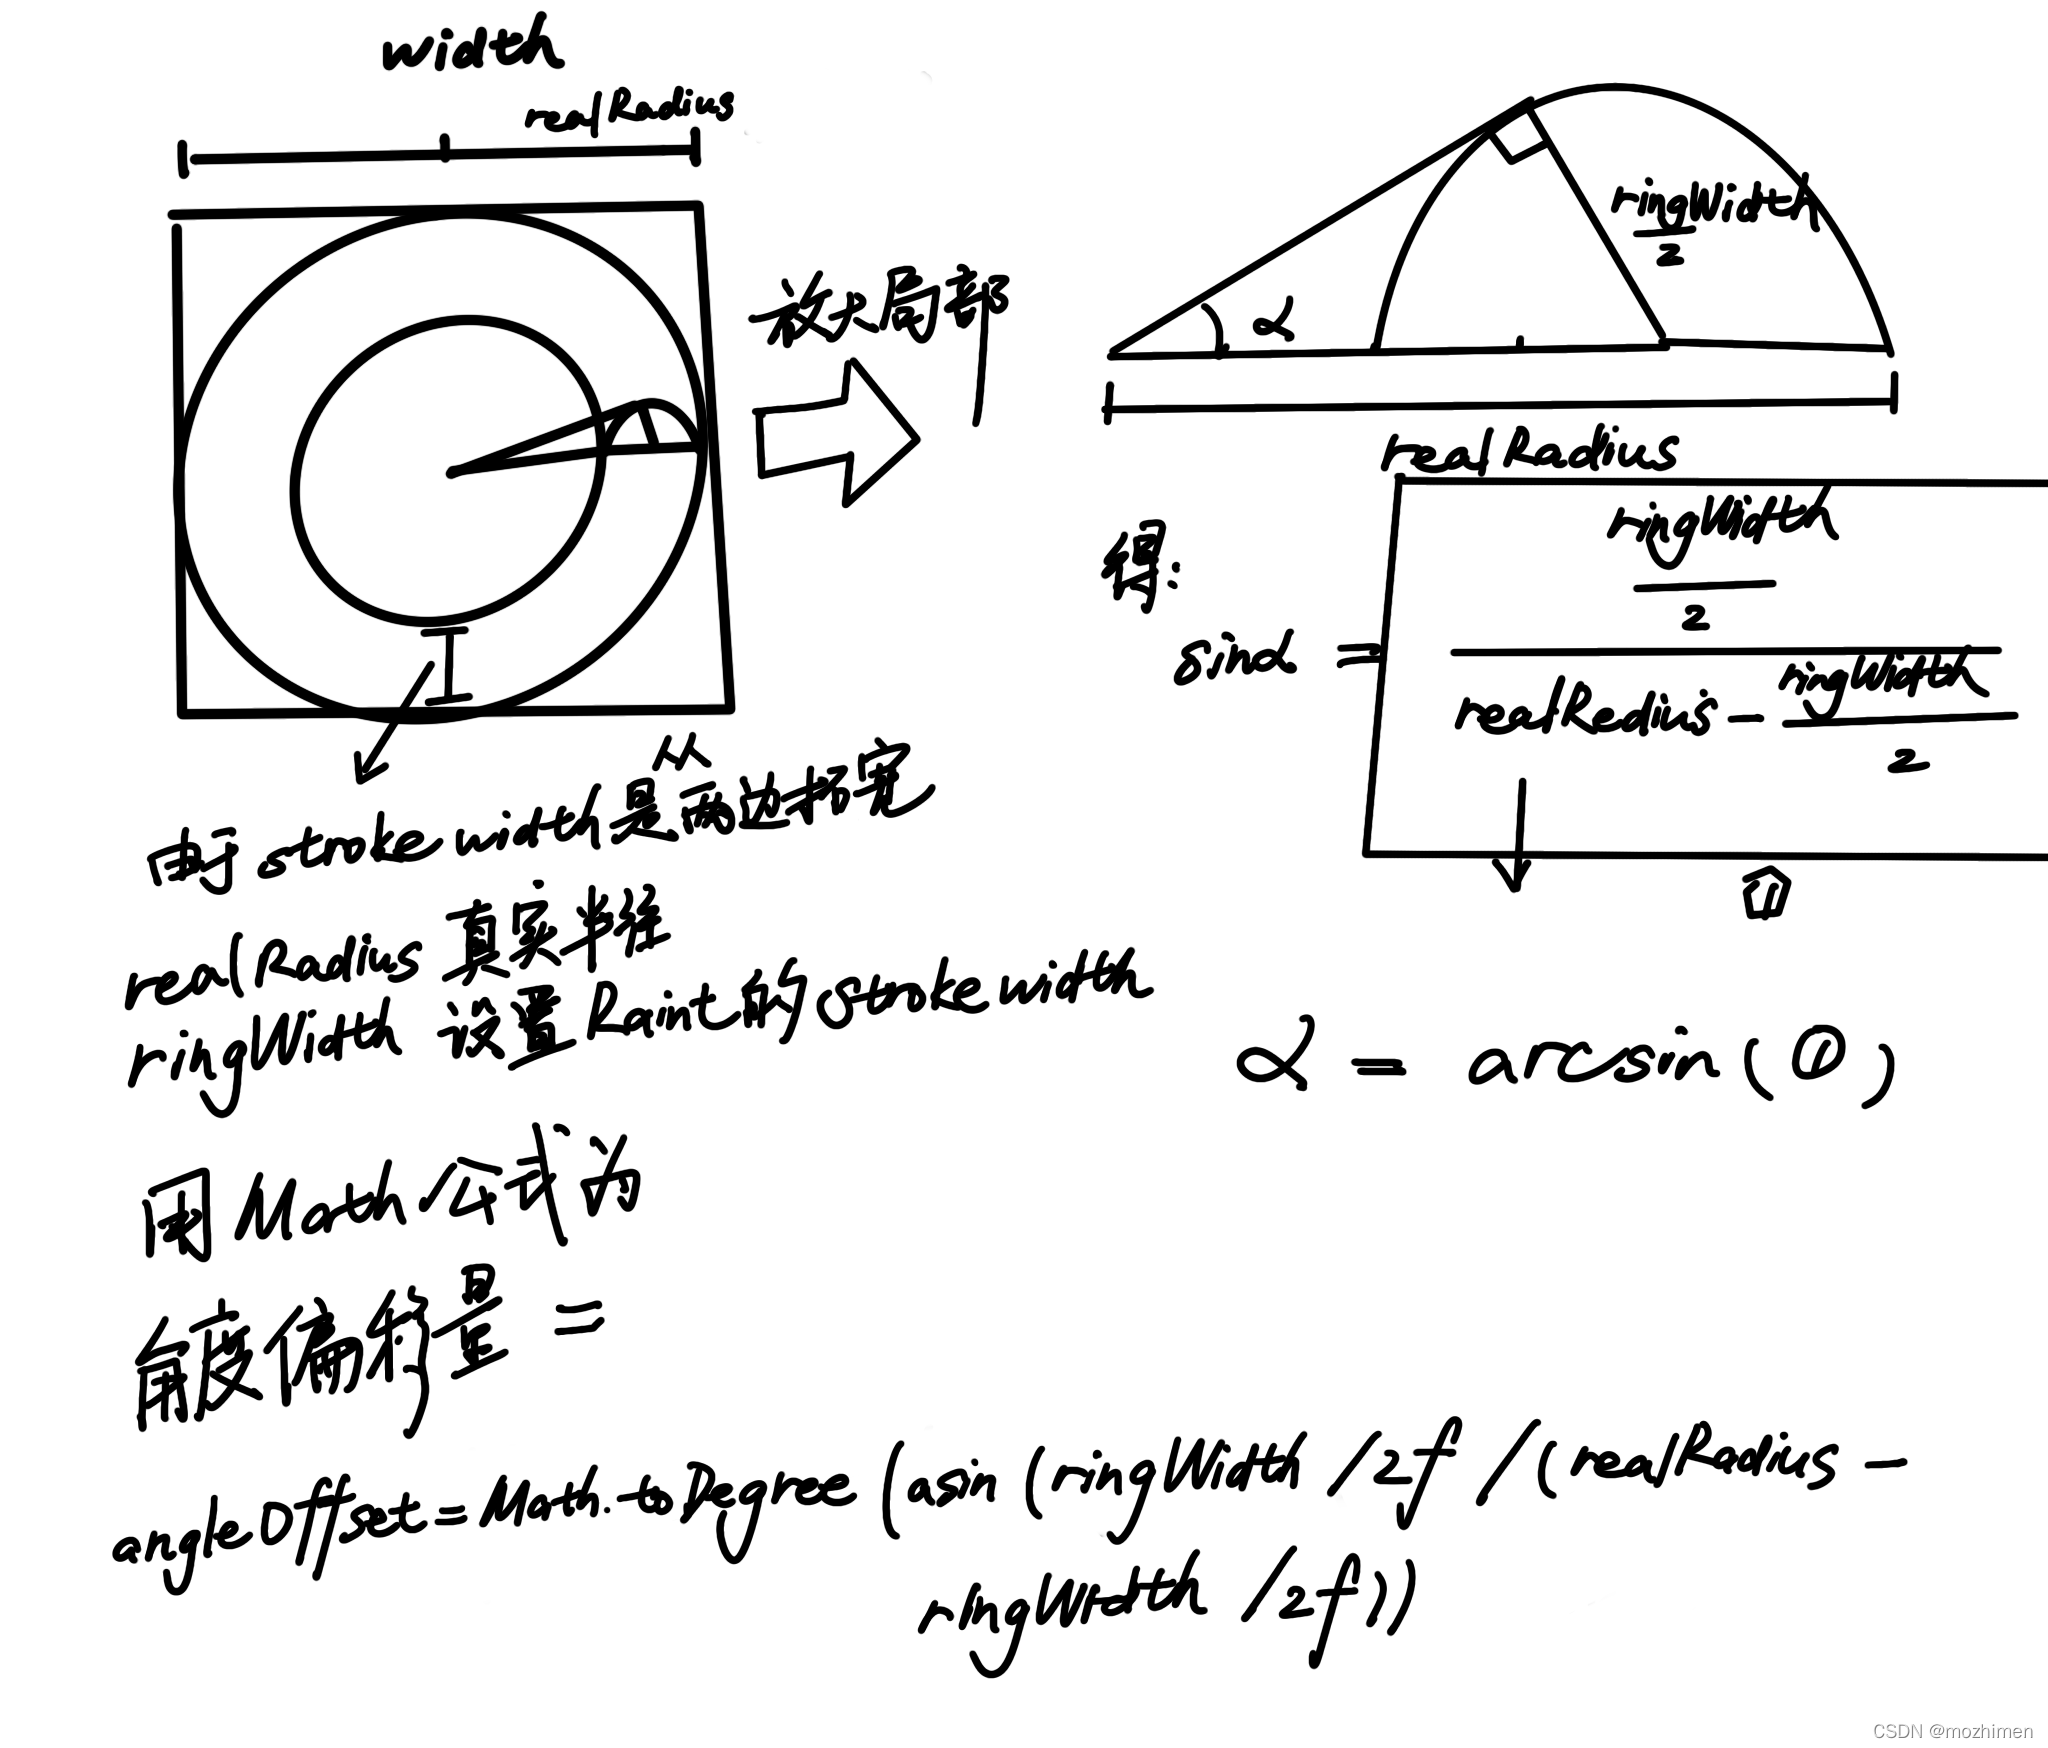 width
realRadius
放大局部
ringWidth
2
α
realRadius
得:
sinα =
ringWidth
2
realRedius - ringWidth
2
①
由于 stroke width 是从两边拓宽
realRadius 真实半径
ringWidth 设置Paint的strokewidth
α = arcsin(①)
用Math公式为
角度偏移量 =
angleOffset = Math.toDegree(asin(ringWidth/2f/(realRadius-
ringWidth/2f))
CSDN @mozhimen